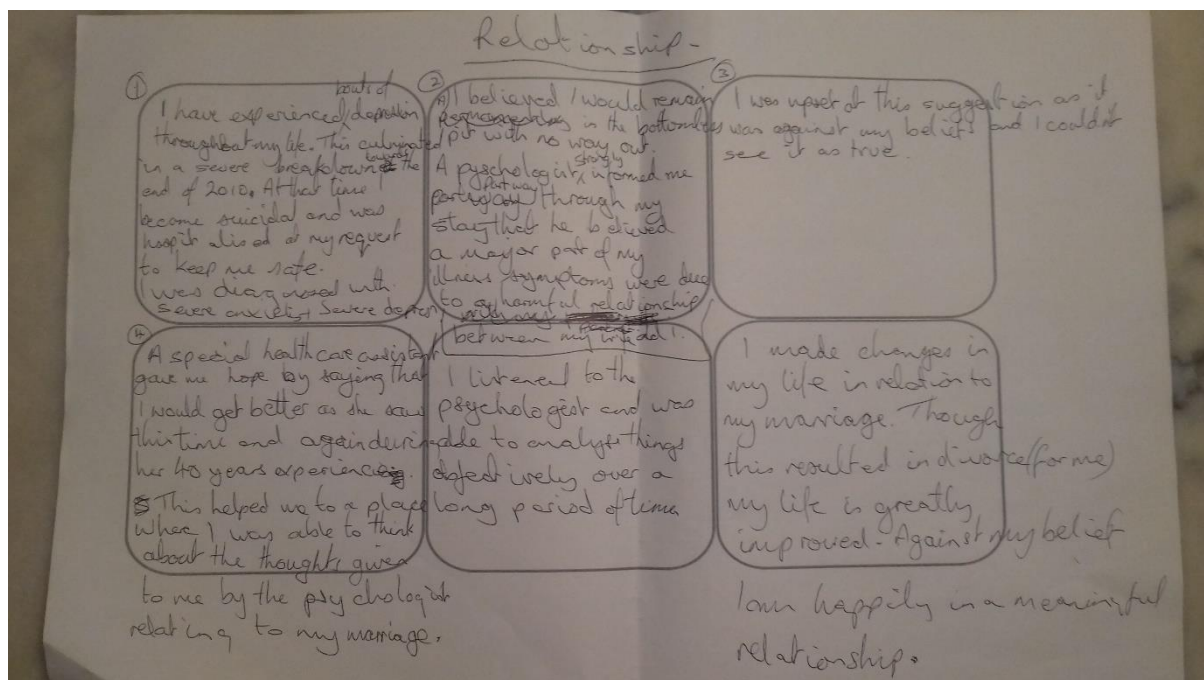 Relationship -
①
bouts of
I have experienced depression
throughout my life. This culminated
in a severe breakdown towards the
end of 2010. At that time I
became suicidal and was
hospitalised at my request
to keep me safe.
I was diagnosed with
severe anxiety, severe depression
②
I believed I would remain
in the bottomless
pit with no way out.
strongly
A pyschologist, informed me
part way
through my
stay that he believed
a major part of my
illness symptoms were due
to a harmful relationship
between my
③
I was upset at this suggestion as it
was against my beliefs and I couldn't
see it as true.
④
A special health care assistant
gave me hope by saying that
I would get better as she saw
this time and again during
her 40 years experience.
This helped me to a place
where I was able to think
about the thoughts given
to me by the psychologist
relating to my marriage.
I listened to the
psychologist and was
able to analyse things
objectively over a
long period of time
I made changes in
my life in relation to
my marriage. Though
this resulted in divorce (for me)
my life is greatly
improved - Against my belief
I am happily in a meaningful
relationship.